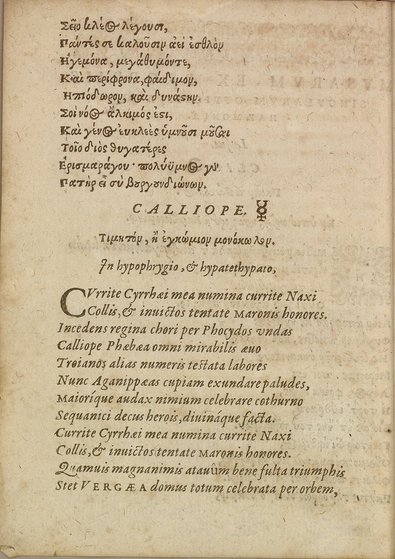 Σεῖο κλέος λέγουσι,
Πάντές σε καλοῦσιν ἀεὶ ἐσθλὸν
Ἡγεμόνα, μεγάθυμόντε,
Καὶ περίφρονα, φαίδιμον,
Ἠπιόδωρον, καὶ δυνάστην.
Σοὶ νόος ἄλκιμός ἐστι,
Καὶ γένος εὐκλεὲς ὑμνοῦσι μοῦσαι
Τοῖο διὸς θυγατέρες
Ἐρισμαράγου· πολύϋμνος
Πατὴρ εἶ σὺ βουργουνδιώνων.
CALLIOPE. ☿
Τιμητὸν, ἢ ἐγκώμιον μονόκωλον.
In hypophrygio, & hypatethypato,
CVrrite Cyrrhæi mea numina currite Naxi
Collis, & inuictos tentate Maronis honores.
Incedens regina chori per Phocydos vndas
Calliope Phæbæa omni mirabilis æuo
Troianos alias numeris testata labores
Nunc Aganippæas cupiam exundare paludes,
Maiorique audax nimium celebrare cothurno
Sequanici decus herois, diuináque facta.
Currite Cyrrhæi mea numina currite Naxi
Collis, & inuictos tentate Maronis honores.
Quamuis magnanimis atauûm bene fulta triumphis
Stet VERGÆA domus totum celebrata per orbem,